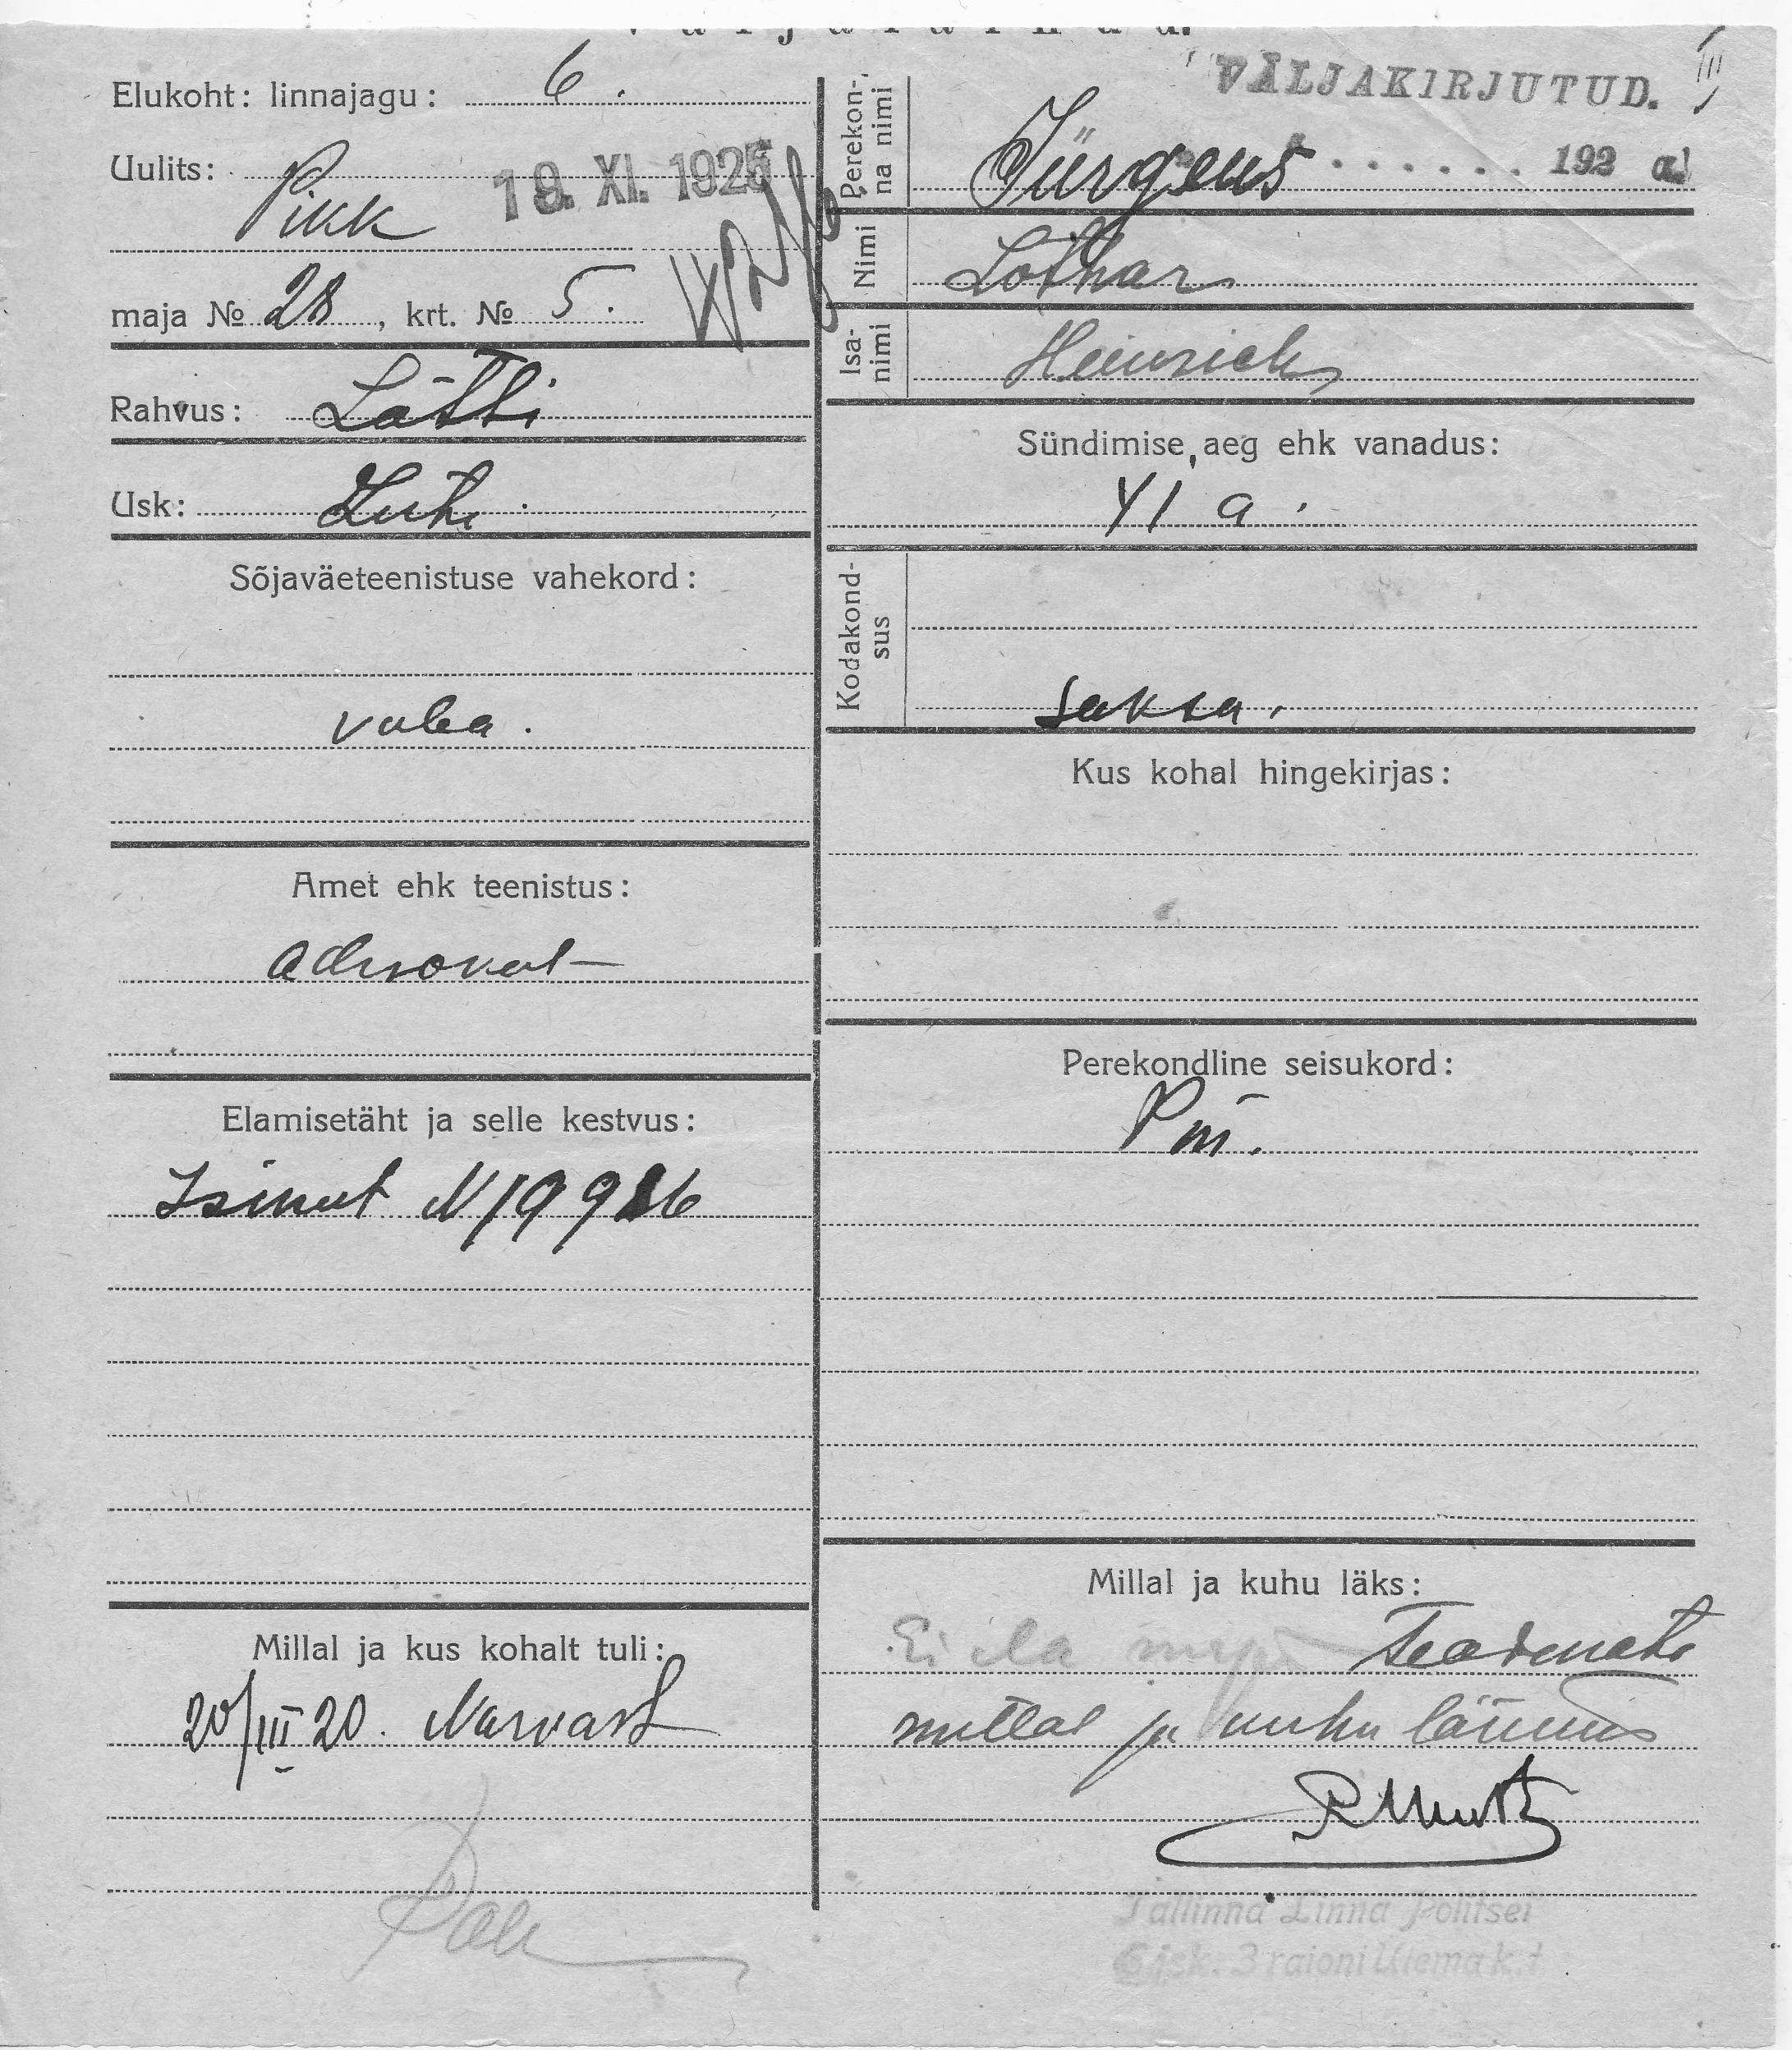 VÄLJAKIRJUTUD. III
192 a.
Elukoht: linnajagu: 6.
Uulits:
Pikk
19. XI. 1925
maja № 28, krt. № 5.
Rahvus: Lätti
Usk: Luth.
Sõjaväeteenistuse vahekord:
vaba.
Amet ehk teenistus:
advokat
Elamisetäht ja selle kestvus:
Isikut N 19926
Millal ja kus kohalt tuli:
20/III 20. Narvast
Perekon-
na nimi
Jürgens
Nimi Lothar
Isa-
nimi
Heinrich
Sündimise aeg ehk vanadus:
41 a.
Kodakond-
sus
saksa.
Kus kohal hingekirjas:
Perekondline seisukord:
Pm.
Millal ja kuhu läks:
Ei ela majas Teadmata
millal ja kuhu läinud
Tallinna Linna Politsei
6 jsk. 3 raioni Ülema k.t.